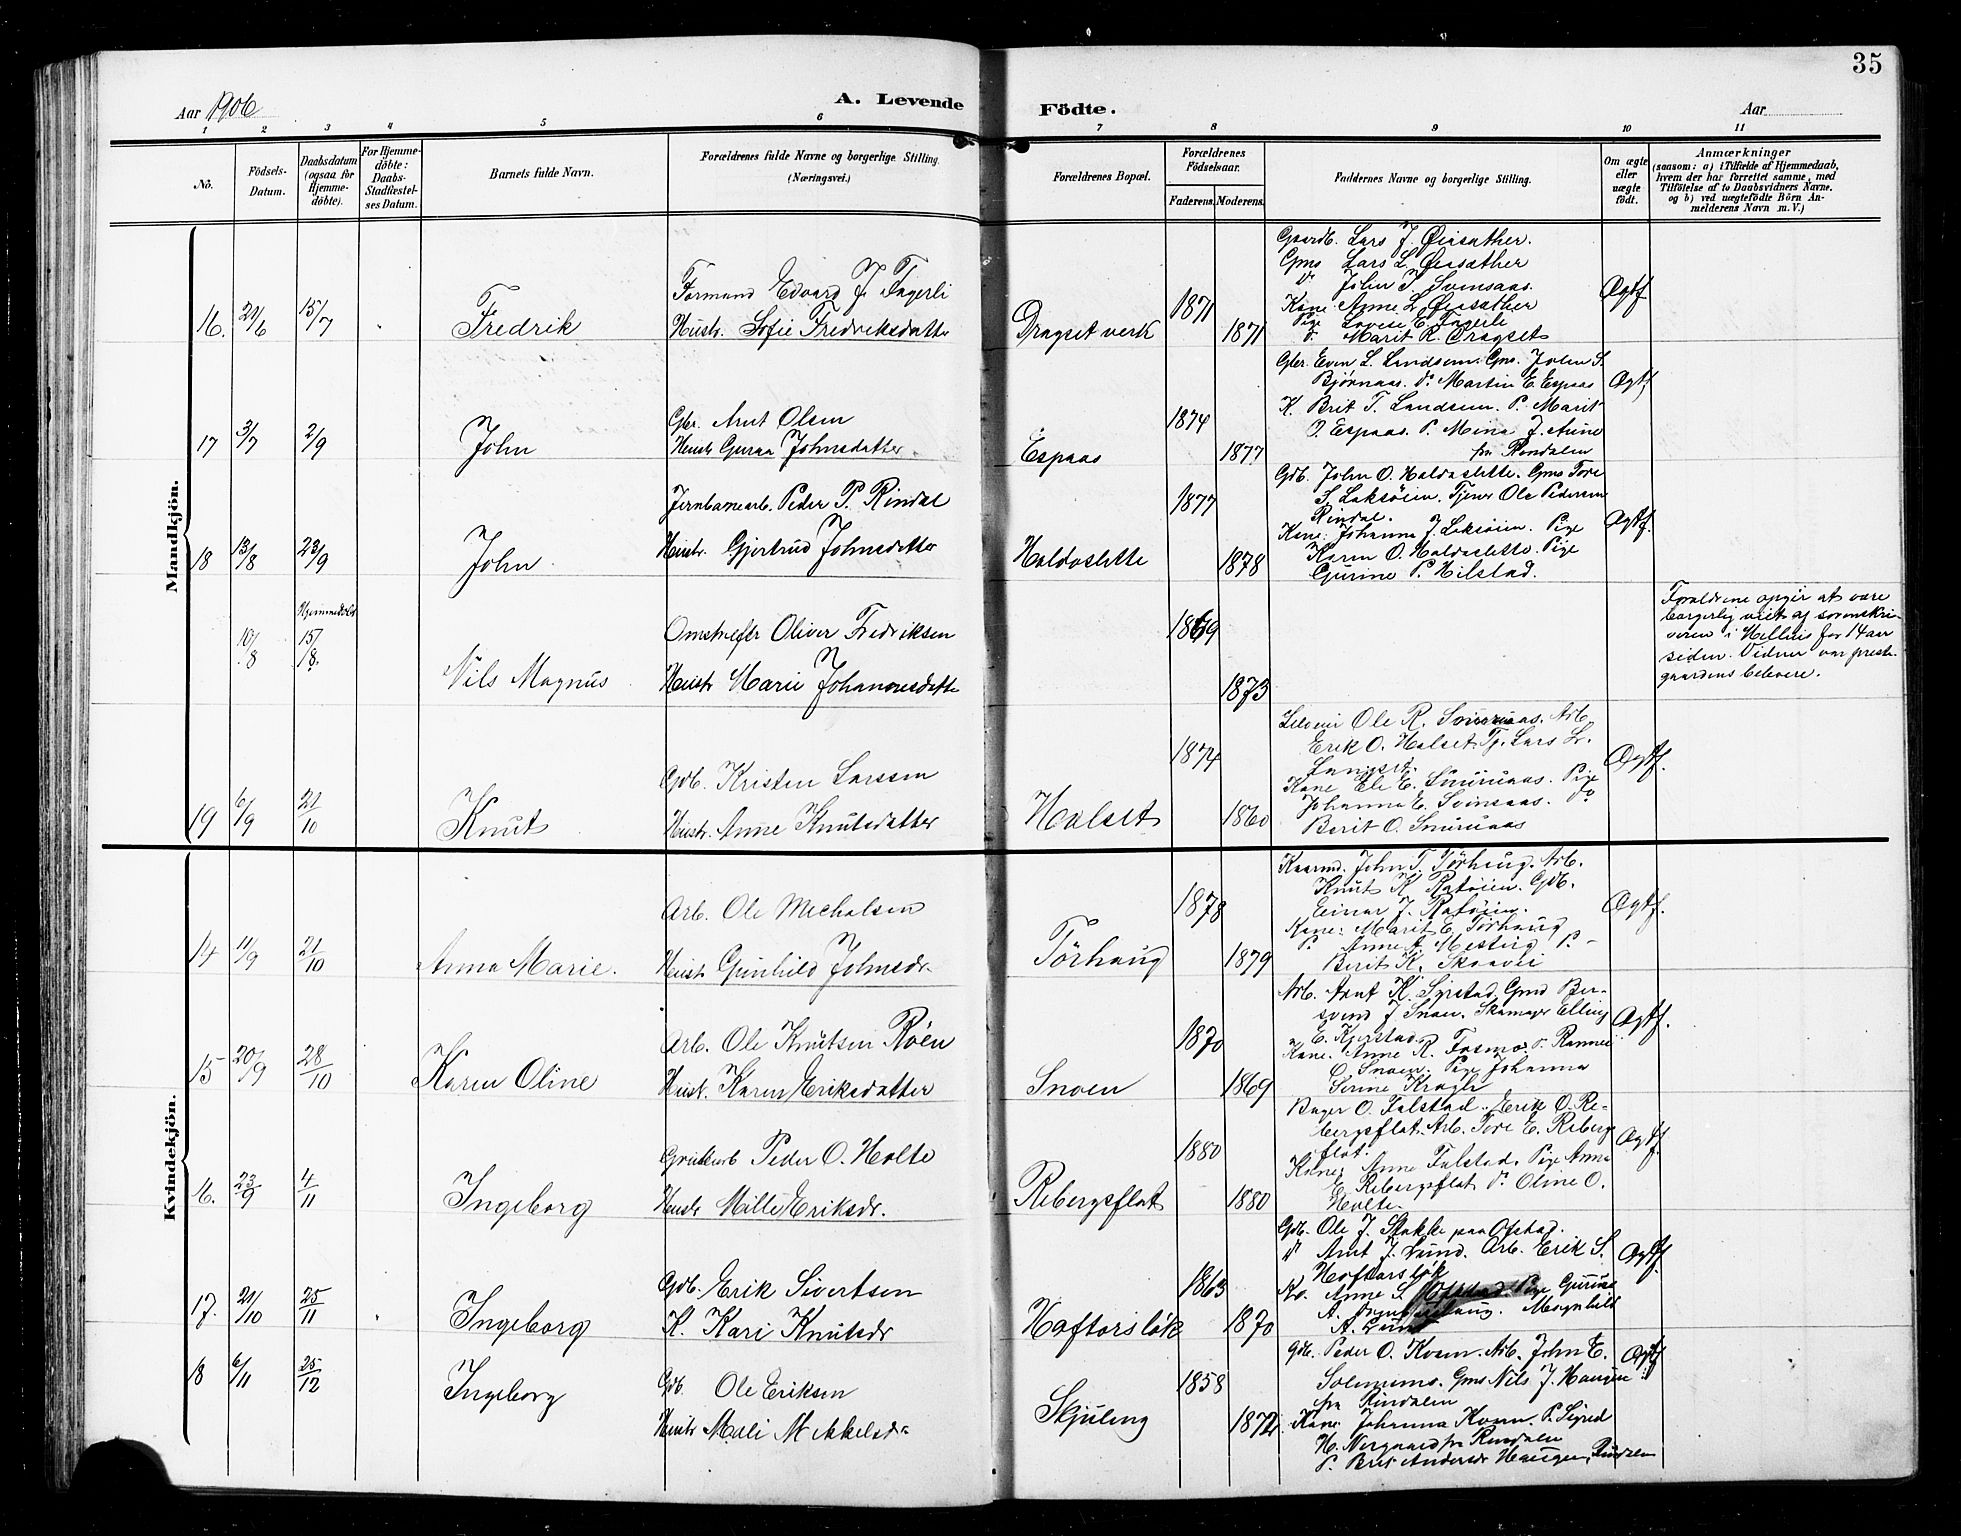 35
Aar 1906
A. Levende Födte.
Aar
1 2 3 4 5 6 7 8 9 10 11
No.
Födsels-Datum.
Daabsdatum (ogsaa for Hjemme-döbte).
For Hjemme-döbte: Daabs-Stadfæstel-ses Datum.
Barnets fulde Navn.
Forældrenes fulde Navne og borgerlige Stilling.
(Næringsvei.)
Forældrenes Bopæl.
Forældrenes Födselsaar.
Faderens. Moderens.
Faddernes Navne og borgerlige Stilling.
Om ægte eller uægte födt.
Anmærkninger
(saasom: a) i Tilfælde af Hjemmedaab,
hvem der har forrettet samme, med
Tilföielse af to Daabsvidners Navne.
og b) ved uægtefödte Börn An-
melderens Navn m. V.)
Mandkjön.
16. 21/6 15/7 Fredrik
Formand Edvard J. Fagerli
Hustr. Sofie Fredriksdatter
Dragset verk
1871
1871
Gaardb. Lars J. Øiasæther.
Gms Lars L. Øiasæther
do John T. Svinsaas.
Kone Anne L. Øiasæther
Pige Lovise E. Fagerli
do Marit R. Dragset
Ægtf
17 3/7 2/9 John
Gbr. Arnt Olsen
Hustr Guraa Johnsdatter
Espaas
1874
1877
Gbr. Even L. Landsem. Gms. John S.
Bjørnaas. do Martin E. Espaas
K. Brit T. Landsem. P. Marit
O. Espaas. P. Mina J. Aune
fra Rindalen
Ægtf
18 13/8 23/9 John
Jernbanearb. Peder P. Rindal
Hustr. Gjertrud Johnsdatter
Haldoslette
1877
1878
Gdb. John O. Haldoslette. Gms Tore
S. Laksöien. Tjener Ole Pedersen
Rindal.
Kone: Johanna J. Leksöien. Pige
Karen O. Haldoslette. Pige
Gurine P. Hilstad.
Ægtf.
10/8 Hjemmedöbt 15/8. Nils Magnus
Omstreifer Oliver Fredriksen
Hustr Marie Johannesdatter
1869
1873
Forældrene opgir at være
borgerlig viet af sorenskri-
veren i Hellus for 14 aar
siden. Vidner var preste-
gaardens beboere.
19 6/9 21/10 Knut
Gdb. Kristen Larssen
Hustr. Anne Knutsdatter
Halset
1874
1860
Ole R. Smiruaas. Arb.
Erik O. Halset Tj. Lars L.
Langset.
Kone Eli E. Smiruaas. Pige
Johanna E. Svinsaas. do
Berit O. Smiruaas
Ægtf.
Kvindekjön.
14 11/9 21/10 Anna Marie.
Arb. Ole Michalsen
Hustr Gunhild Johnsdr.
Törhaug
1878
1879
Kaarmd. John T. Törhaug. Arb.
Knut K. Ratöien. Gdb.
Einar J. Ratöien.
Kone: Marit E. Törhaug
P. Anne A. Mestrig P.
Berit K. Skaavei
Ægtf.
15 20/9 28/10 Karen Oline
Arb. Ole Knutsen Röen
Hustr. Karen Eriksdatter
Snoen
1870
1869
Arb. Arnt K. Syrstad. Gmd Ber-
svend J. Snoen. Skomager Elling
E. Kjerstad.
Kone. Anne R. Fosmo. P. Rannei
O. Snoen. Pige Johanna
Serine Kragli
Ægtf.
16. 23/9 4/11 Ingeborg
Grubearb Peder O. Holte
Hustr Milli Eriksdr.
Rebergsflat
1880
1880
Bager O. Falstad. Erik O. Re-
bergsflat. Arb. Tore E. Reberg
flat.
Kone: Anne Falstad. Pige Anna
E. Rebergsflat do Oline O.
Holte
Ægtf.
17. 21/10 25/11 Ingeborg
Gdb. Erik Sivertsen
K. Kari Knutsdr
Haftorslök
1863
1870
Gdb. Ole J. Stokke paa Ofstad.
do Arnt J. Lund. Arb. Erik S.
Haftorslök
Ko. Anne S. Ofstad. Pige Gurine
Magnhild
A. Lund
Ægtf.
18 6/11 25/12 Ingeborg
Gdb. Ole Eriksen
Hustr Mali Mikkelsdr
Skjuling
1858
1872
Gdb. Peder O. Kosen. Arb. John E.
Solemsmo. Gms Nils J. Haugen
fra Rindalen
Kone: Johanna Kosen. P. Sigrid
H. Norgaard fra Rindalen
P. Brit Andersdr Haugen, Rindalen
Ægtf